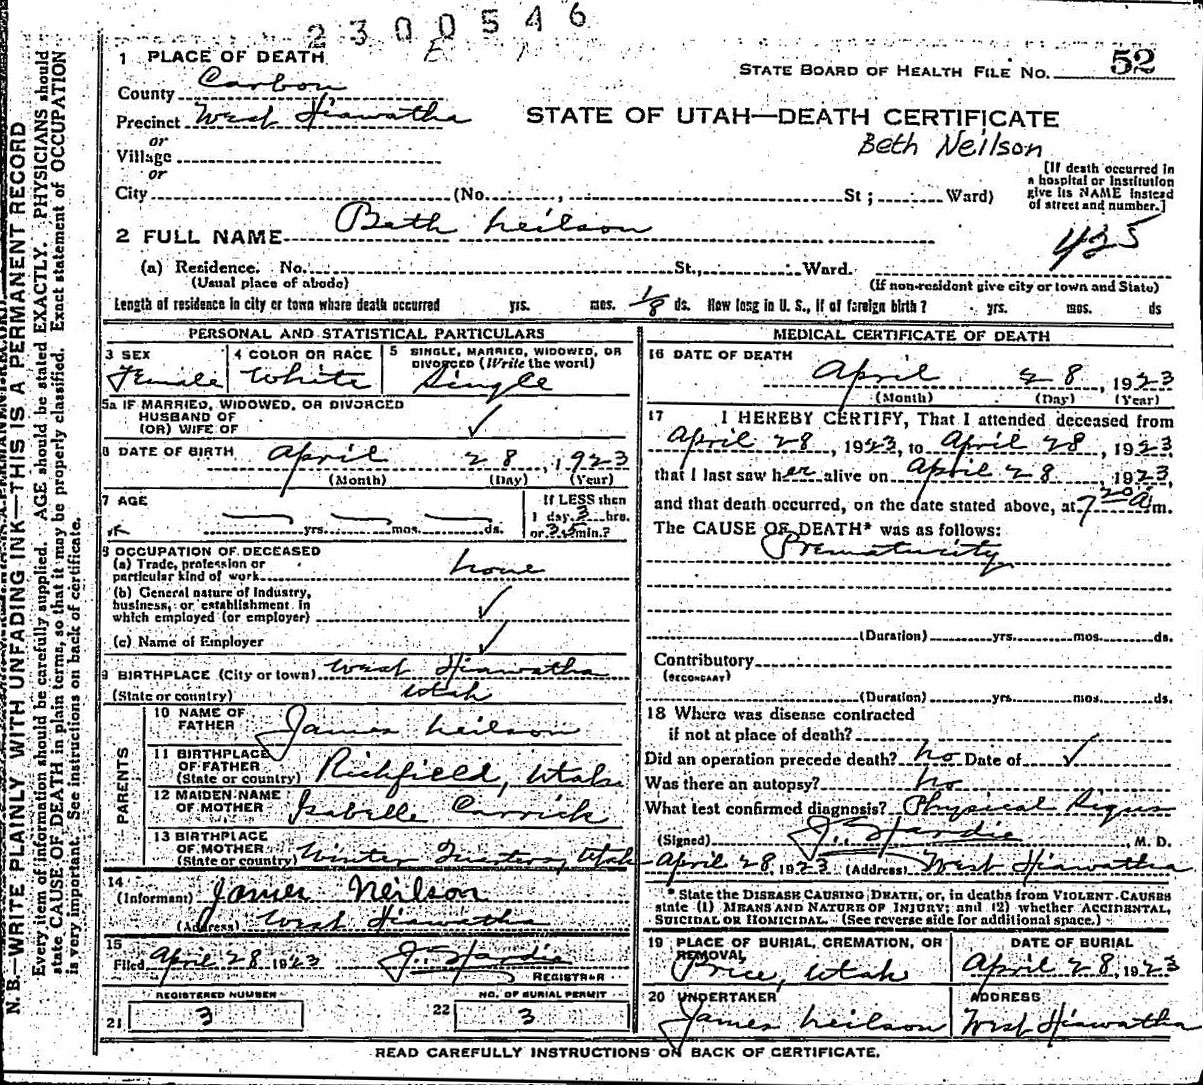 2300546
1 PLACE OF DEATH
STATE BOARD OF HEALTH FILE NO. 52
County Carbon
Precinct West Hiawatha
STATE OF UTAH—DEATH CERTIFICATE
or
Beth Neilson
Village
or
[If death occurred in
a hospital or institution
give its NAME instead
of street and number.]
City (No. , St ; Ward)
2 FULL NAME Beth Neilson
425
(a) Residence. No. St., Ward.
(Usual place of abode)
(If non-resident give city or town and State)
Length of residence in city or town where death occurred yrs. mos. 1/8 ds. How long in U. S., if of foreign birth? yrs. mos. ds
PERSONAL AND STATISTICAL PARTICULARS
3 SEX
Female
4 COLOR OR RACE
White
5 SINGLE, MARRIED, WIDOWED, OR
DIVORCED (Write the word)
Single
5a IF MARRIED, WIDOWED, OR DIVORCED
HUSBAND OF
(OR) WIFE OF ✓
6 DATE OF BIRTH April 28, 1923
(Month) (Day) (Year)
7 AGE
yrs. mos. ds.
If LESS then
1 day 3 hrs.
or 35 min.?
8 OCCUPATION OF DECEASED
(a) Trade, profession or
particular kind of work none
(b) General nature of Industry,
business, or establishment in
which employed (or employer) ✓
(c) Name of Employer ✓
9 BIRTHPLACE (City or town) West Hiawatha
(State or country) Utah
PARENTS
10 NAME OF
FATHER James Neilson
11 BIRTHPLACE
OF FATHER
(State or country) Richfield, Utah
12 MAIDEN NAME
OF MOTHER Isabelle Carrick
13 BIRTHPLACE
OF MOTHER
(State or country) Winter Quarters, Utah
14
(Informant) James Neilson
(Address) West Hiawatha
15
Filed April 28 1923 J. Hardie
REGISTRAR
REGISTERED NUMBER
21 3
NO. OF BURIAL PERMIT
22 3
MEDICAL CERTIFICATE OF DEATH
16 DATE OF DEATH
April 28, 1923
(Month) (Day) (Year)
17 I HEREBY CERTIFY, That I attended deceased from
April 28, 1923, to April 28, 1923
that I last saw her alive on April 28, 1923,
and that death occurred, on the date stated above, at 7 20 a m.
The CAUSE OF DEATH* was as follows:
Prematurity
(Duration) yrs. mos. ds.
Contributory
(SECONDARY)
(Duration) yrs. mos. ds.
18 Where was disease contracted
if not at place of death?
Did an operation precede death? no Date of ✓
Was there an autopsy? no
What test confirmed diagnosis? Physical Signs
(Signed) J. Hardie, M. D.
April 28, 1923 (Address) West Hiawatha
* State the DISEASE CAUSING DEATH, or, in deaths from VIOLENT CAUSES
state (1) MEANS AND NATURE OF INJURY; and (2) whether ACCIDENTAL,
SUICIDAL OR HOMICIDAL. (See reverse side for additional space.)
19 PLACE OF BURIAL, CREMATION, OR
REMOVAL
Price, Utah
DATE OF BURIAL
April 28, 1923
20 UNDERTAKER
James Neilson
ADDRESS
West Hiawatha
READ CAREFULLY INSTRUCTIONS ON BACK OF CERTIFICATE.
N. B.—WRITE PLAINLY WITH UNFADING INK—THIS IS A PERMANENT RECORD
Every item of information should be carefully supplied. AGE should be stated EXACTLY. PHYSICIANS should
state CAUSE OF DEATH in plain terms, so that it may be properly classified. Exact statement of OCCUPATION
is very important. See instructions on back of certificate.